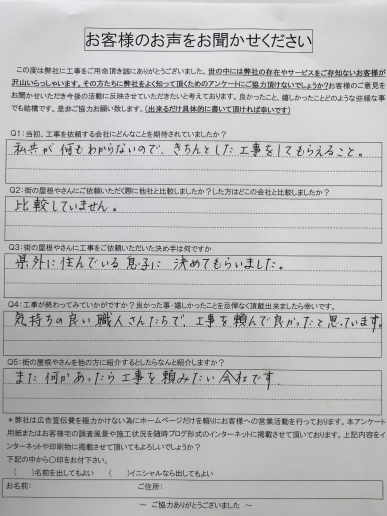 お客様のお声をお聞かせください
この度は弊社に工事をご用命頂き誠にありがとうございました。世の中には弊社の存在やサービスをご存知ないお客様が
沢山いらっしゃいます。その方たちに弊社をよく知って頂くためのアンケートにご協力頂けないでしょうか?お客様のご意見を
お聞かせいただき今後の活動に反映させていただきたいと考えております。良かったこと、嬉しかったことどのような些細な事
でも結構です。是非ご協力お願い致します。(出来るだけ具体的に書いて頂ければ幸いです)
Q1:当初、工事を依頼する会社にどんなことを期待されていましたか?
私共が何もわからないので、きちんとした工事をしてもらえること。
Q2:街の屋根やさんにご依頼いただく際に他社と比較しましたか?した方はどこの会社と比較しましたか?
比較していません。
Q3:街の屋根やさんに工事をご依頼いただいた決め手は何ですか
県外に住んでいる息子に決めてもらいました。
Q4:工事が終わってみていかがですか?良かった事・嬉しかったことを忌憚なく頂戴出来ましたら幸いです。
気持ちの良い職人さんたちで、工事を頼んで良かったと思っています。
Q5:街の屋根やさんを他の方に紹介するとしたらなんと紹介しますか?
また何かあったら工事を頼みたい会社です。
*弊社は広告宣伝費を極力かけない為にホームページだけを頼りにお客様への営業活動を行っております。本アンケート
用紙またはお客様宅の調査風景や施工状況を随時ブログ形式のインターネットに掲載させて頂いております。上記内容をイ
ンターネットや印刷物に掲載させて頂いてもよろしいでしょうか?
下記の中から〇印をお付下さい。
( )名前を出してもよい ( )イニシャルなら出してもよい
お名前: ご住所:
~ ご協力ありがとうございました ~